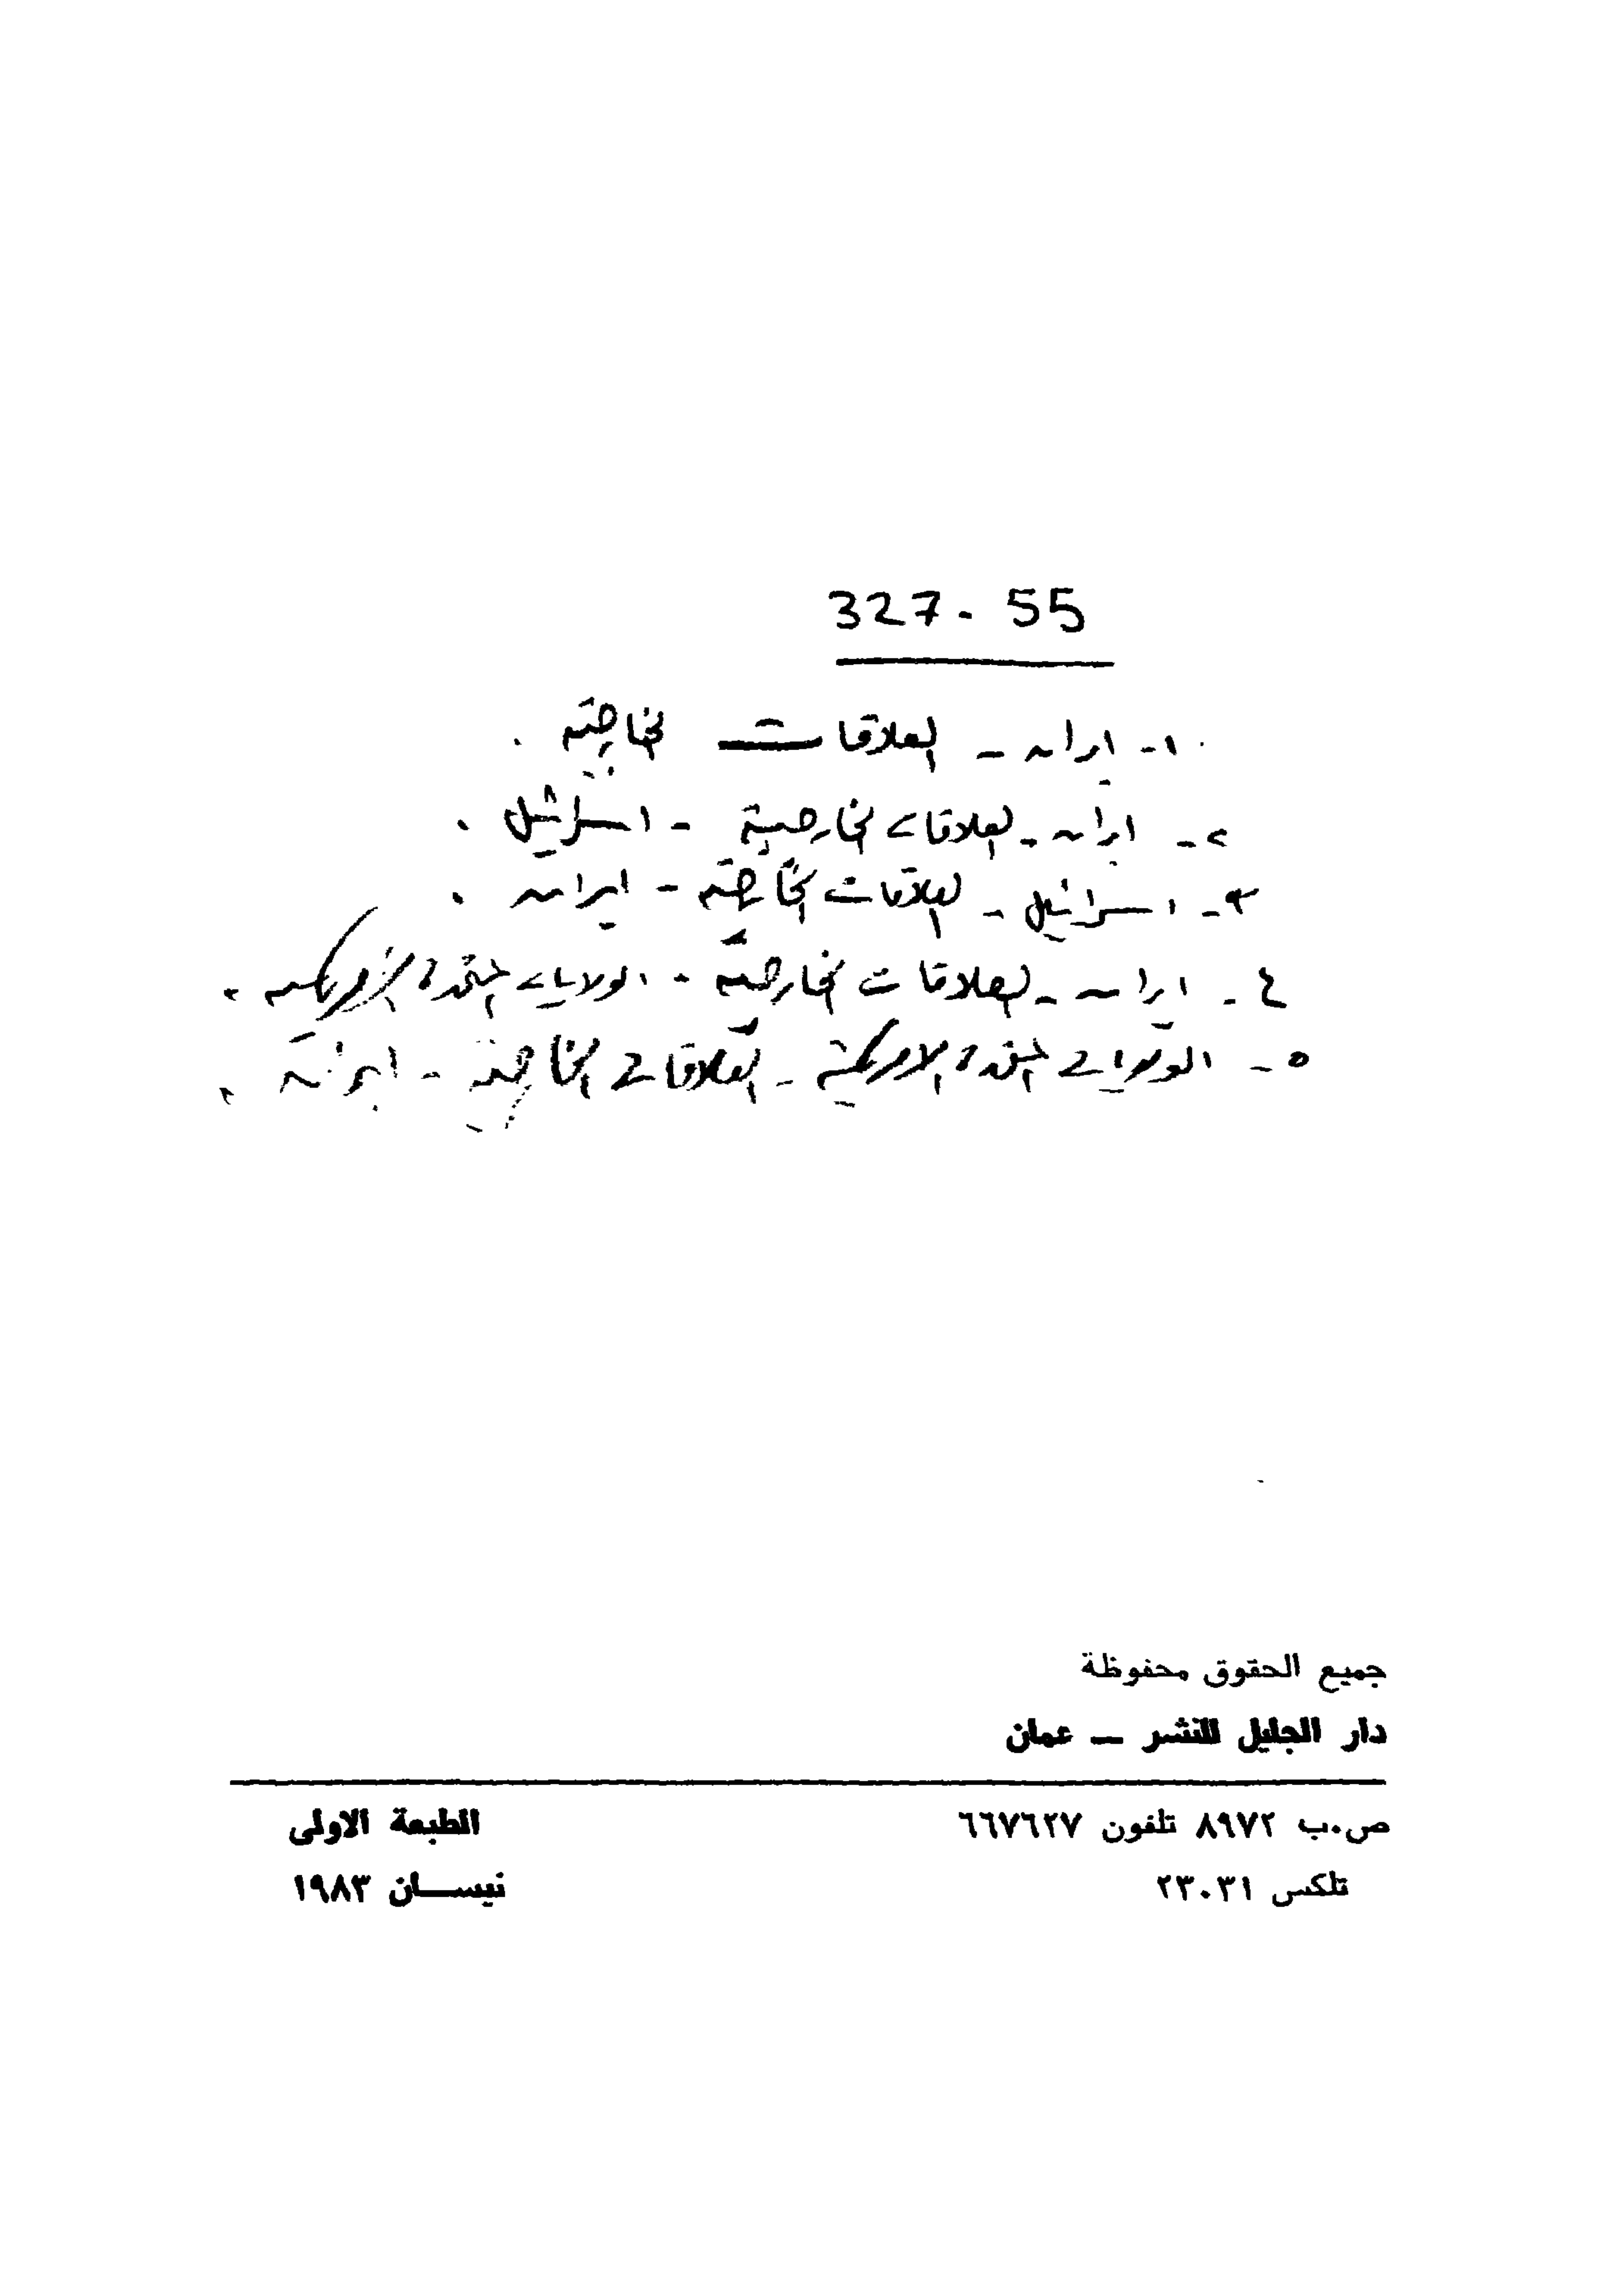 327.55
١- ايران - العلاقات الخارجية .
٢- ايران - العلاقات الخارجية - اسرائيل .
٣- اسرائيل - العلاقات الخارجية - ايران .
٤- ايران - العلاقات الخارجية - الولايات المتحدة الامريكية .
٥- الولايات المتحدة الامريكية - العلاقات الخارجية - ايران .
جميع الحقوق محفوظة
دار الجليل للنشر — عمان
ص.ب ٨٩٧٢ تلفون ٦٦٧٦٢٧
الطبعة الاولى
تلكس ٢٣٠٣١
نيسـان ١٩٨٣